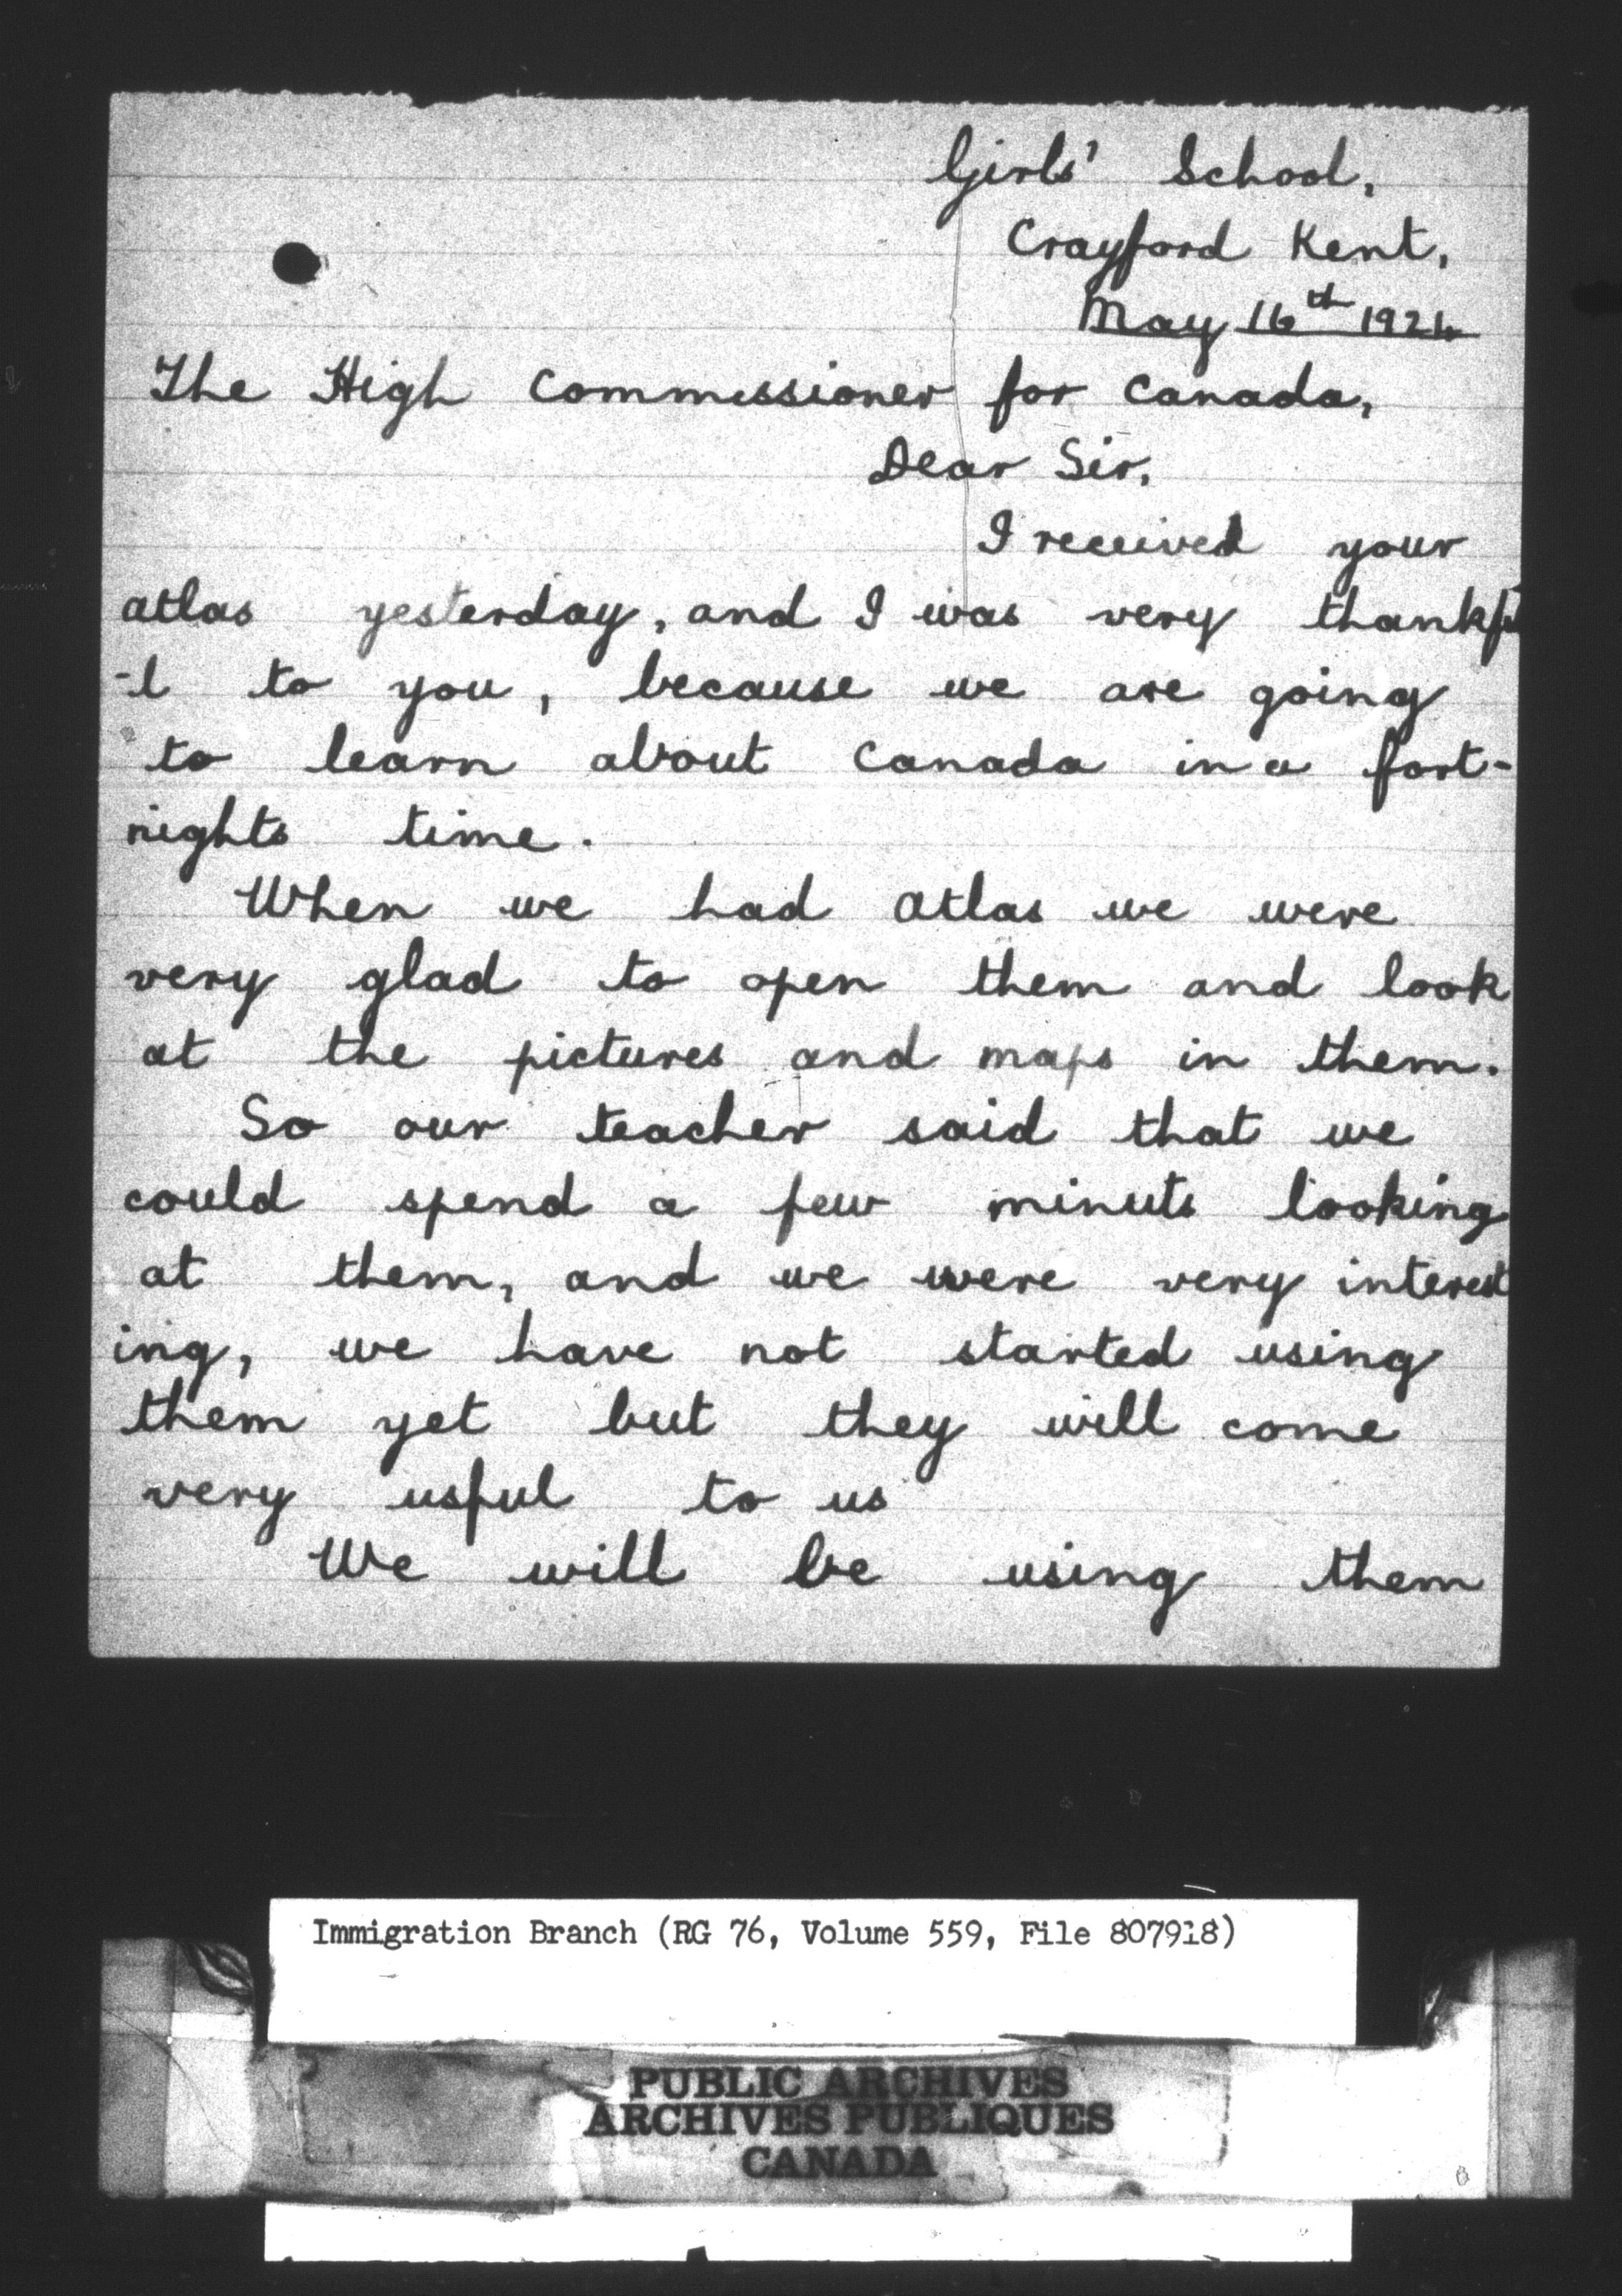 Girls' School,
Crayford Kent,
May 16th 1924
The High Commissioner for Canada,
Dear Sir,
I received your
atlas yesterday, and I was very thankfu
-l to you, because we are going
to learn about Canada in a fort-
nights time.
When we had atlas we were
very glad to open them and look
at the pictures and maps in them.
So our teacher said that we
could spend a few minuts looking
at them, and we were very interest
ing, we have not started using
them yet but they will come
very usful to us
We will be using them
Immigration Branch (RG 76, Volume 559, File 807918)
PUBLIC ARCHIVES
ARCHIVES PUBLIQUES
CANADA